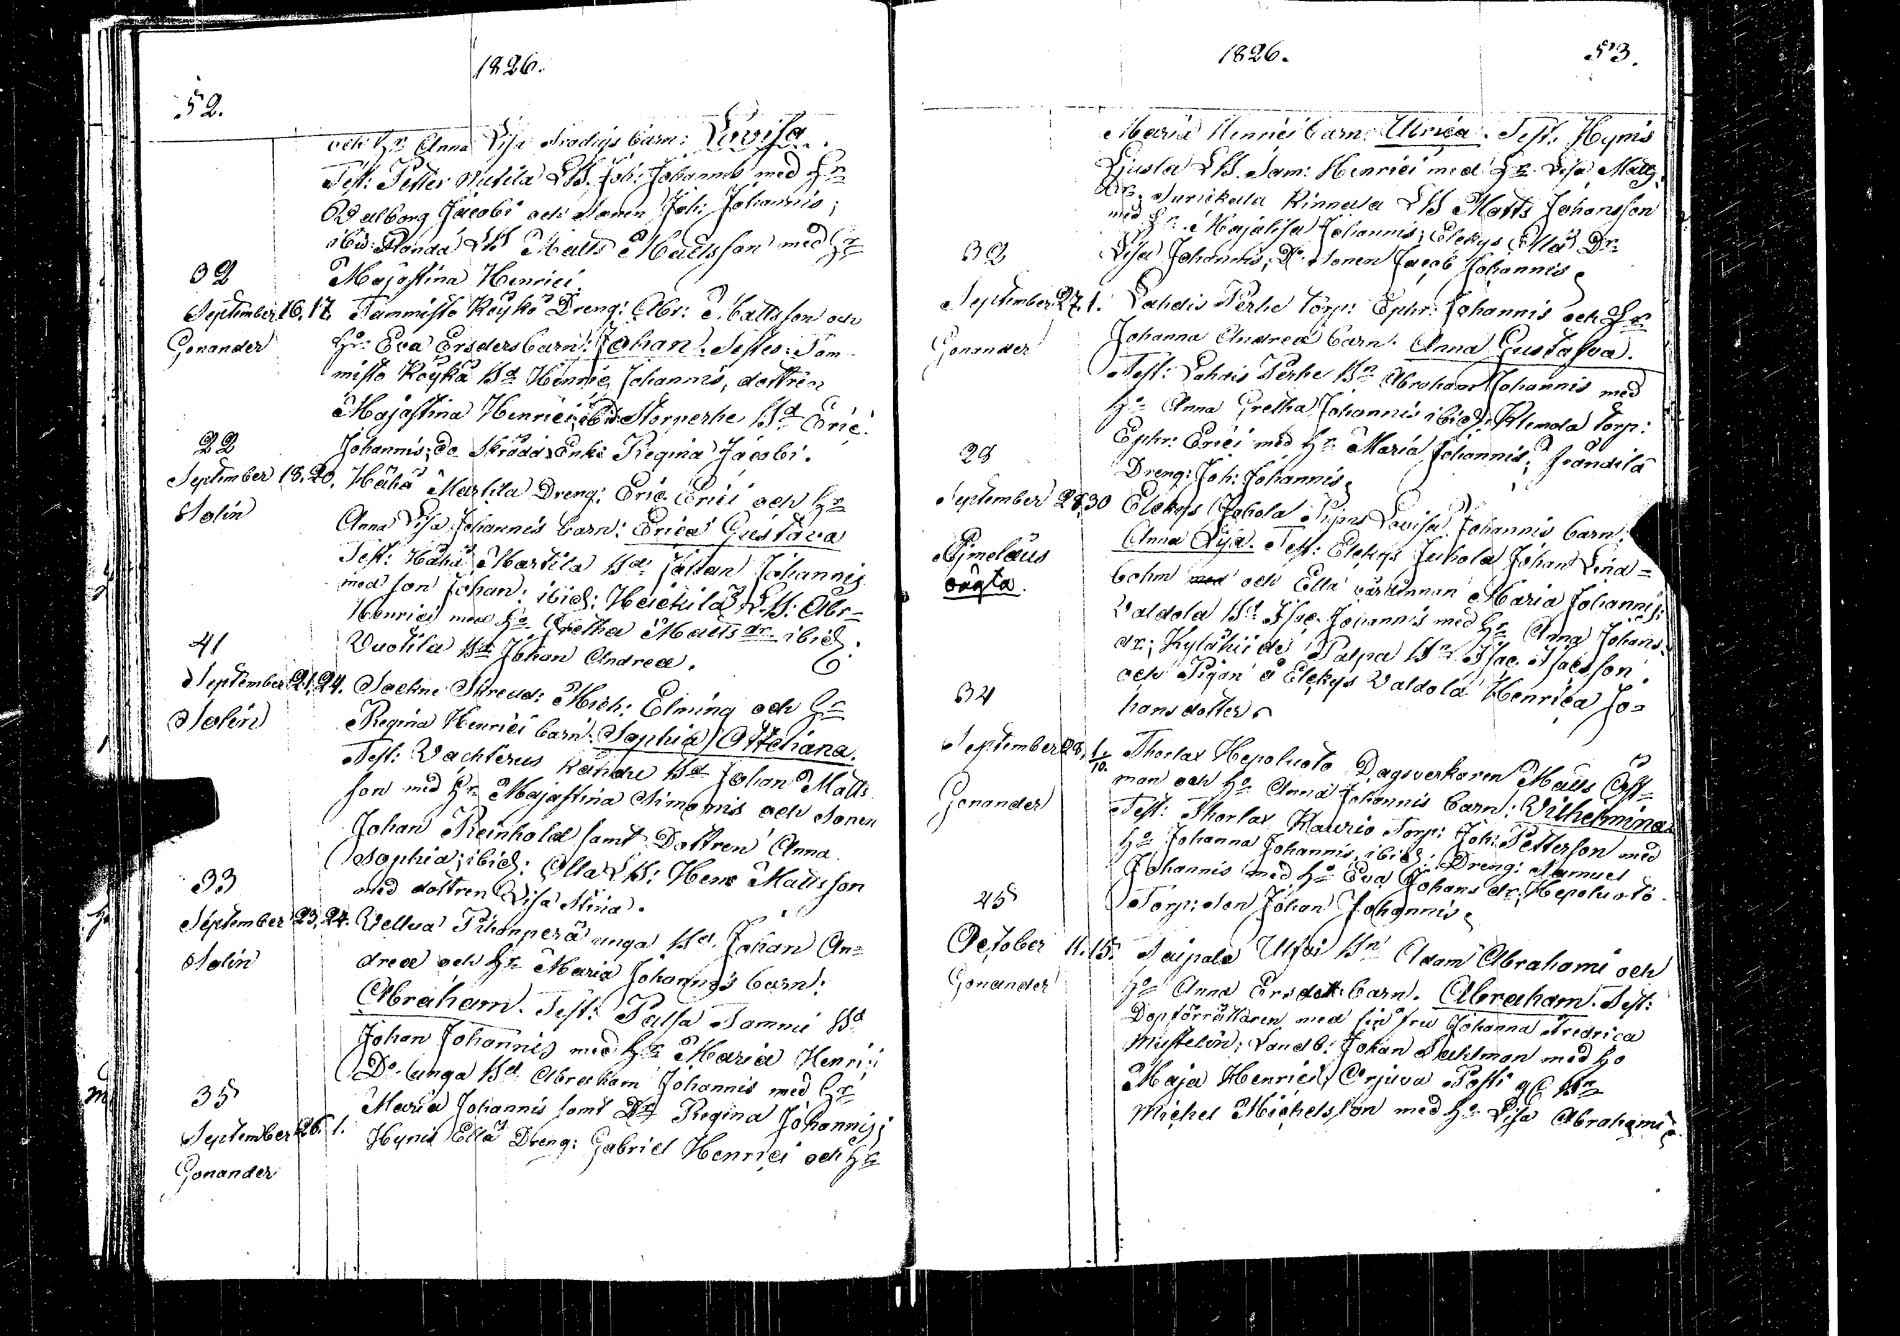 1826.
52.
och h: Anna Lisa Fredrics barn: Lovisa.
Test: Petter LB. Joh: Johannis med hu
Walborg Jacobi och Sonen Joh: Johannis;
ibid: LB Matts Mattsson med hu
32 Majastina Henrici.
September 16. 17. Tammisto Köykä Dreng: Abr: Mattsson och
Gonander hu: Eva Ersders barn: Johan. Testes: Tam
misto Köykä Bd Henric Johannis, dottren
Majastina Henrici; ibid: Storperhe Bd Eric
22 Johannis; do Skrädd: Enka Regina Jacobi.
September 18. 20. Hähä Martila Dreng: Eric Erici och hu
Solin Anna Lisa Johannis barn: Erica Gustava
Test: Hähä Martila Bd: Johan Johannis
med son Johan; ibid: Heickilä LB: Abr=
Henrici med hu Gretha Matts dr. ibid:
41 Vuotila Bd Johan Andreæ.
September 21. 24. Skredd: Mich: Elming och hu
Solin Regina Henrici barn: Sophia Ottiliana.
Test: Vachterus Bd Johan Matts
son med hu Majastina Simonis och Sonen
Johan Reinhold samt Dottren Anna
Sophia; ibid: Olla LB: Henr Mattsson
33 med dottren Lisa Stina.
September 23. 24. Vellua Pihanperä unga Bd. Johan An=
Solin dreæ och hu Maria Johannis barn:
Abraham. Test: Palsa Sammu Bd
Johan Johannis med hu Maria Henrici;
Do. unga Bd Abraham Johannis med hu
35 Maria Johannis samt Dr Regina Johannis;
September 26. 1. Hynis Ellä Dreng: Gabriel Henrici och hu
Gonander
1826. 53.
Maria Henrici barn: Ulrica. Test: Hynis
LB. Sam: Henrici med hu Lisa Matts
dr: Surickala Rinnala LB Matts Johansson
med hu Majalisa Johannis; Elekys Ellä Dr
32 Lisa Johannis, Do. Sonen Jacob Johannis
September 27. 1. Lahdis Perhe Torp: Ephr: Johannis och hu
Gonander Johanna Andreæ barn: Anna Gustafva.
Test: Lahdis Perhe Bn Abraham Johannis med
hu Anna Gretha Johannis ibid: Klemola Torp:
Ephr: Erici med hu Maria Johannis; Frändilä
23 Dreng: Joh: Johannis.
September 28. 30 Elekys Juhola Pigas Lovisa Johannis barn:
Ajmelæus Anna Lisa. Test: Elekys Juhola Johan Lind=
oägta. bohm med och Ellä värdinnan Maria Johannis;
Valdola Bd Isac Johannis med hu Anna Johans
dr; Kylähiide Palpa Bn Isac Isacsson,
och Pigan å Elekys Valdola Henrica Jo=
34 hansdotter
September 28. 1/10. Thorlax Hepoluoto Dagsverkaren Matts Öst=
Gonander man och hu Anna Johannis barn: Vilhelmina
Test: Thorlax Kaurio Torp: Joh: Petterson med
hu Johanna Johannis, ibid: Dreng: Samuel
Johannis med hu Eva Johans dr; Hepoluoto
25 Torp: Son Johan Johannis.
October 11. 15. Saipola Ulfoi Bn Adam Abrahami och
Gonander hu Anna Ersdott: barn: Abraham. Test:
Dopförrättaren med sin fru Johanna Fredrica
Mustelin; Landb: Johan med hu
Maja Henrici, Orjuva Posti Bn
Michel Michelsson med hu Lisa Abrahami